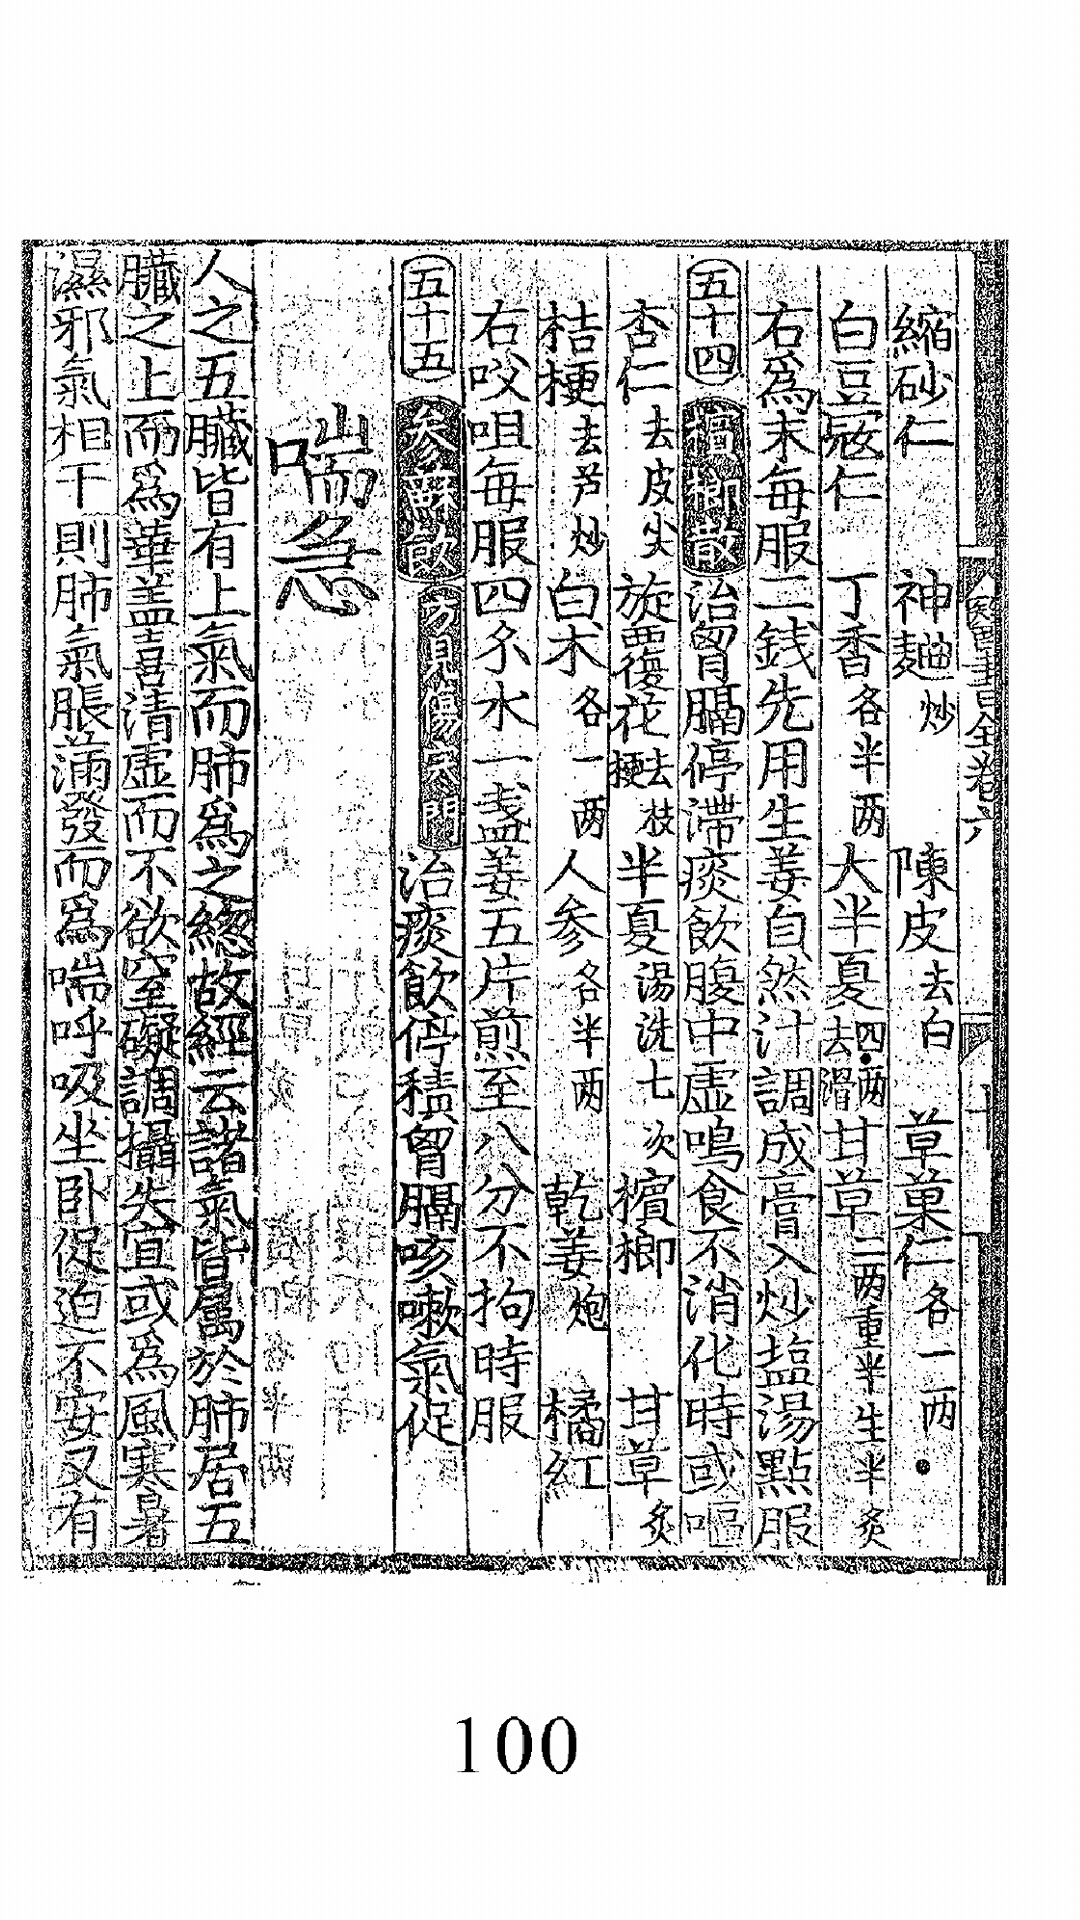 縮砂仁 神麯炒 陳皮去白 草菓仁各一两
白豆寇仁 丁香各半两 大半夏四两去滑 甘草二两重半生半炙
右爲末每服二錢先用生姜自然汁調成膏入炒塩湯點服
五十四 檳榔散 治胷膈停滯痰飲腹中虛鳴食不消化時或嘔
杏仁去皮尖 旋覆花去枝梗 半夏湯洗七次 檳榔 甘草炙
桔梗去芦炒 白术各一两 人參各半两 乾姜炮 橘紅
右㕮咀每服四尒水一盞姜五片煎至八分不拘時服
五十五 參蘇飲 方見傷寒門 治痰飲停積胷膈咳嗽氣促
喘急
人之五臟皆有上氣而肺爲之緫故經云諸氣皆屬於肺居五
臟之上而爲華盖喜清虛而不欲窒礙調攝失宜或爲風寒暑
濕邪氣相干則肺氣脹滿發而爲喘呼吸坐卧促迫不安又有
醫書大全卷六
100